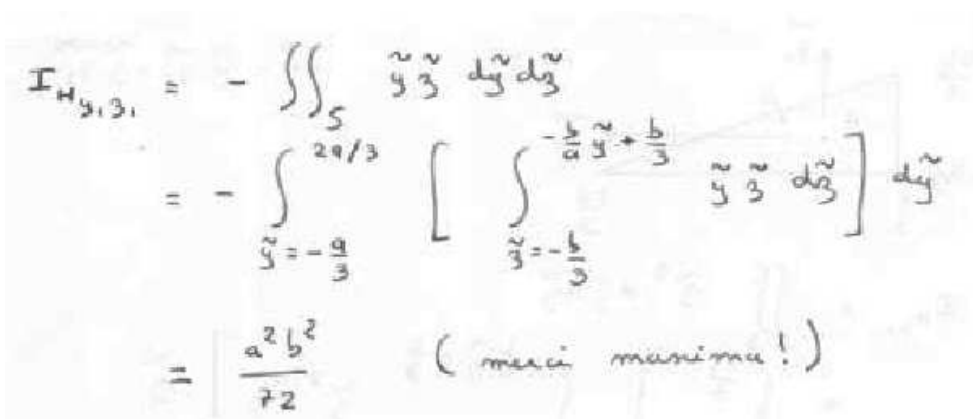 I_{H y_1 z_1} = - ∬_S ỹ z̃ dỹ dz̃
= - ∫_{ỹ = -a/3}^{2a/3} [ ∫_{z̃ = -b/3}^{-b/a ỹ + b/3} ỹ z̃ dz̃ ] dỹ
= a²b²/72 (merci maxima!)